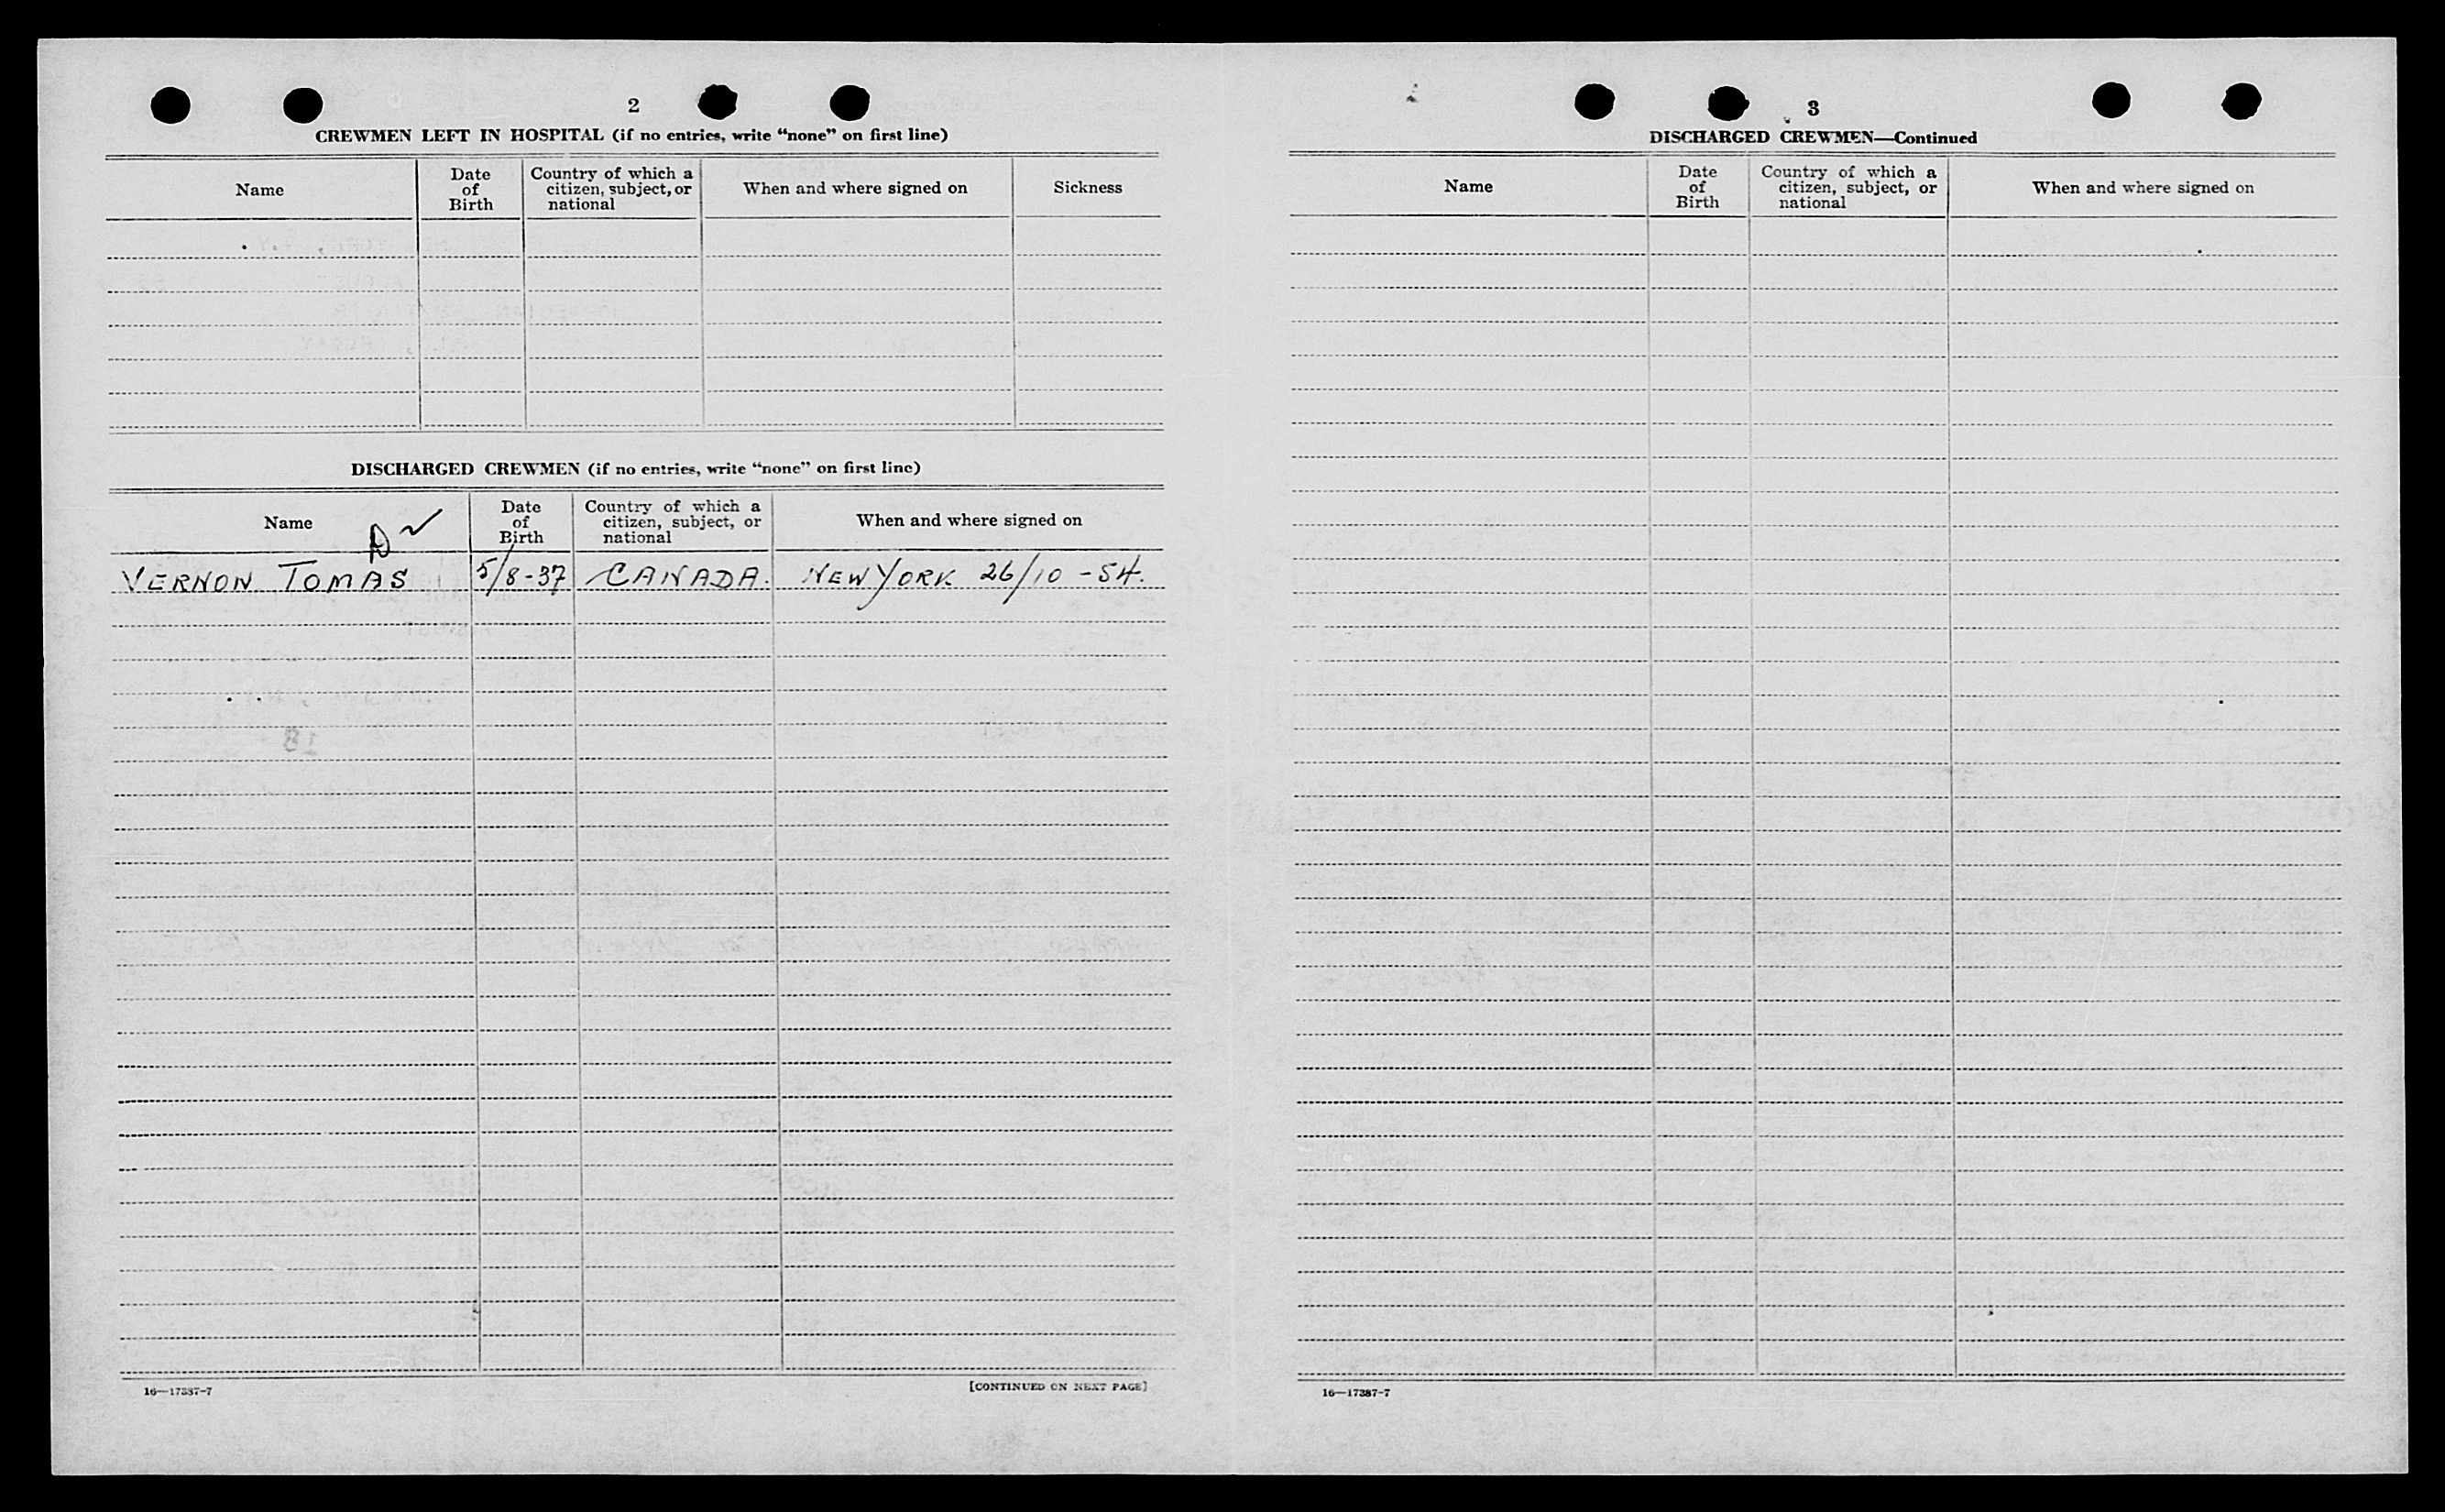 2
CREWMEN LEFT IN HOSPITAL (if no entries, write “none” on first line)
Name
Date of Birth
Country of which a citizen, subject, or national
When and where signed on
Sickness
DISCHARGED CREWMEN (if no entries, write “none” on first line)
Name
Date of Birth
Country of which a citizen, subject, or national
When and where signed on
VERNON TOMAS 5/8-37 CANADA. NEW YORK 26/10 -54.
16—17387-7
[CONTINUED ON NEXT PAGE]
3
DISCHARGED CREWMEN—Continued
Name
Date of Birth
Country of which a citizen, subject, or national
When and where signed on
16—17387-7